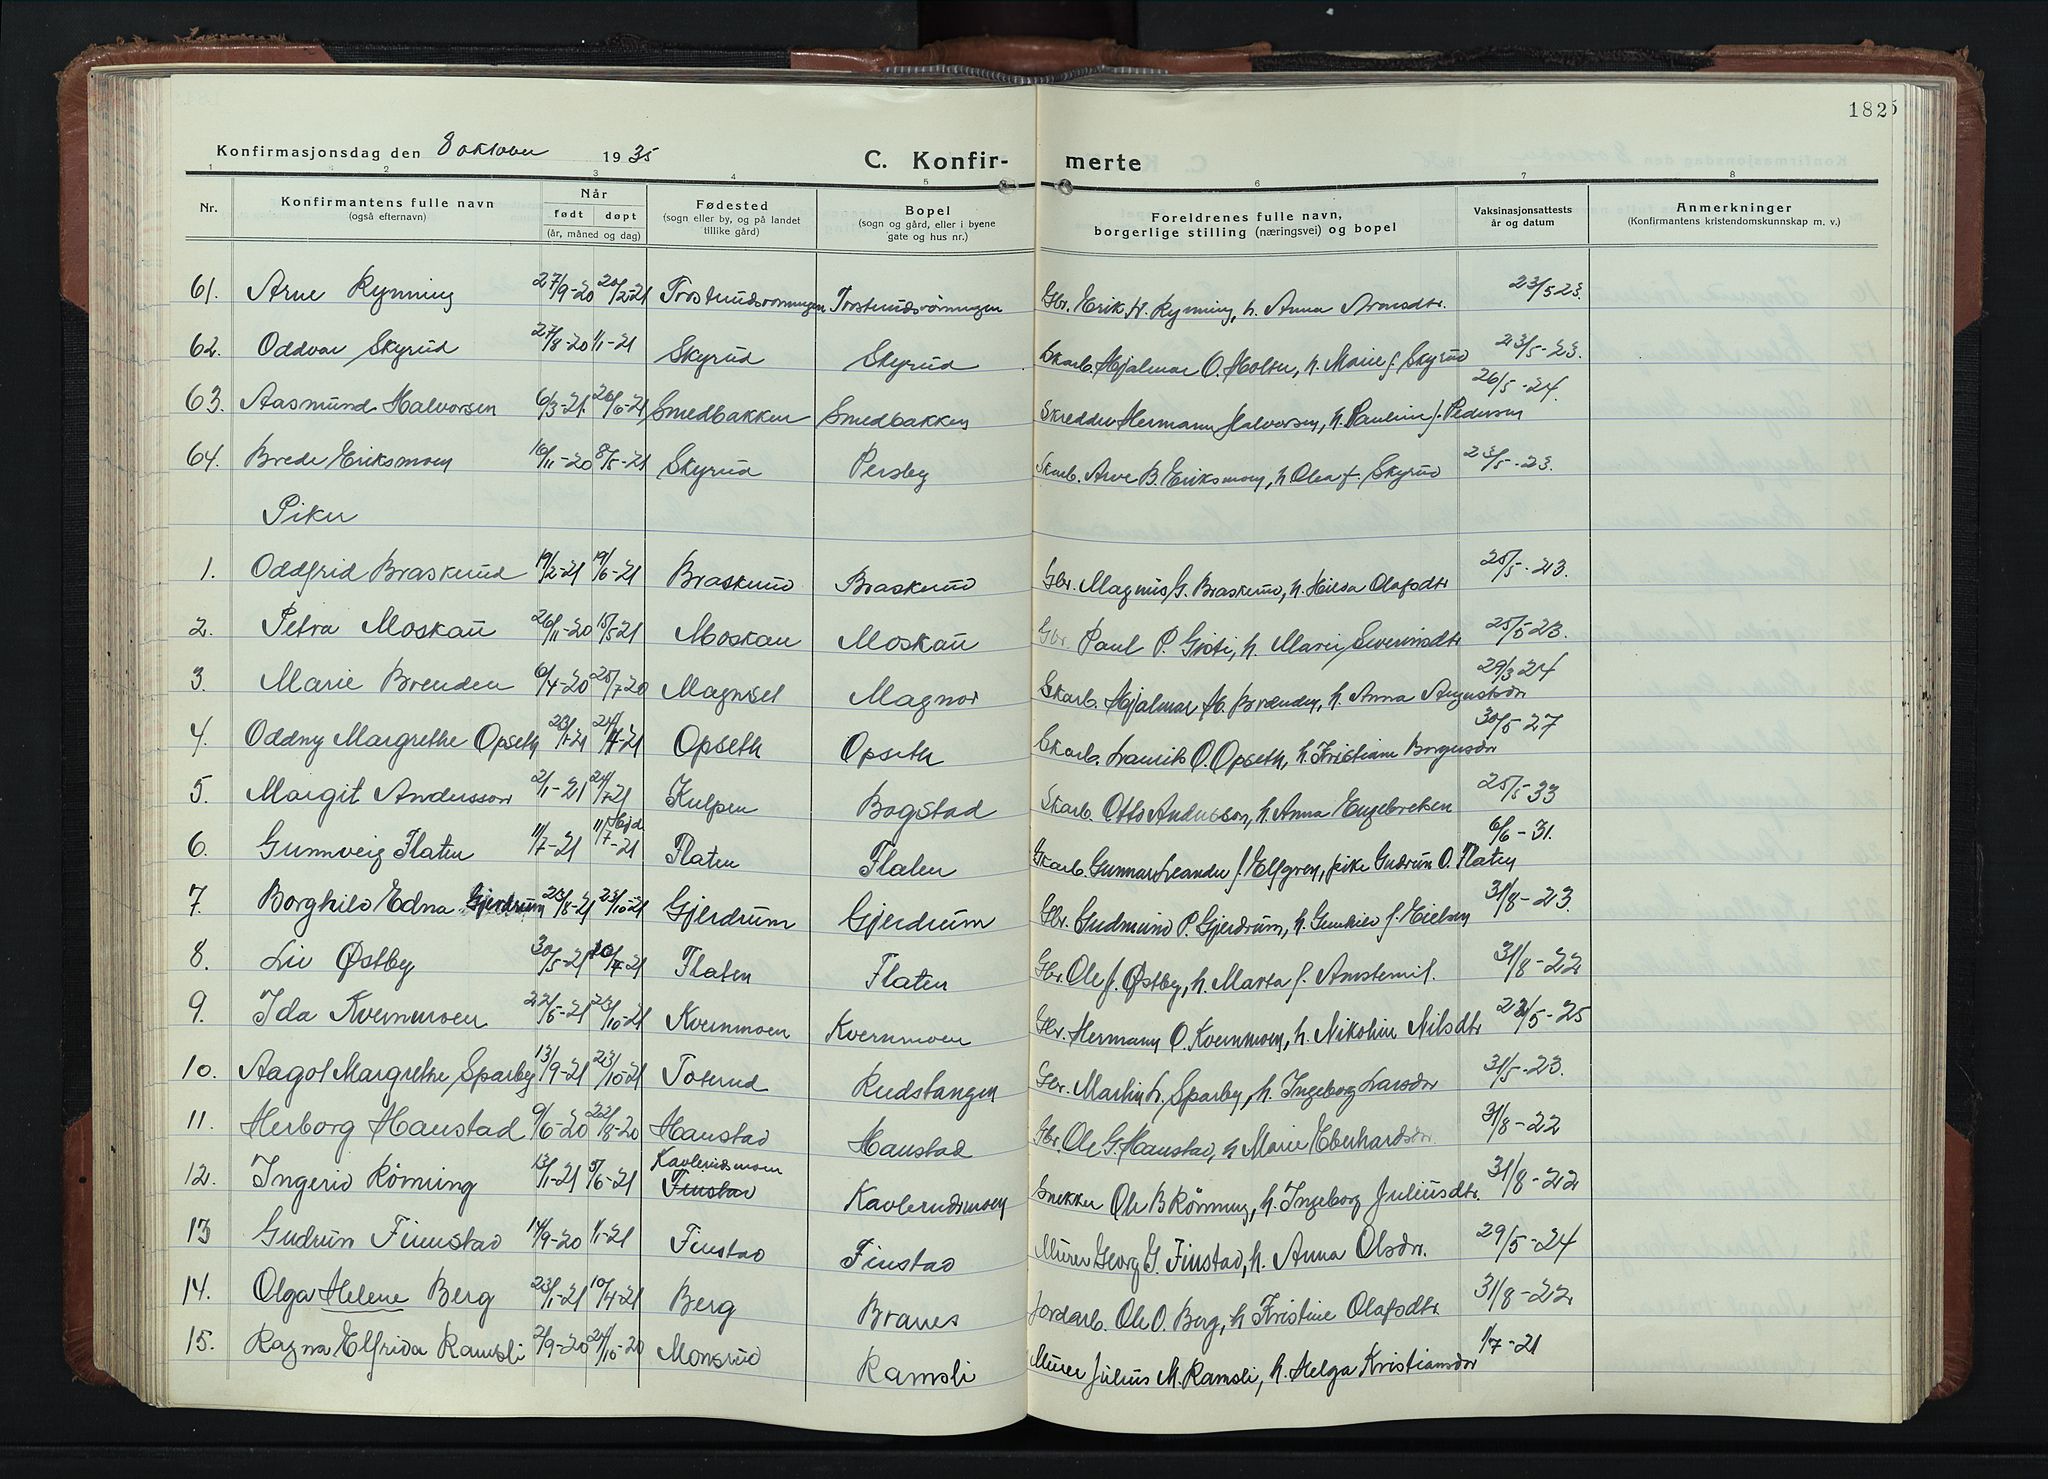 182
Konfirmasjonsdag den 8 oktober 1935 C. Konfir- merte
1 2 3 4 5 6 7 8
Nr. Konfirmantens fulle navn (også efternavn) Når født døpt (år, måned og dag) Fødested (sogn eller by, og på landet tillike gård) Bopel (sogn og gård, eller i byene gate og hus nr.) Foreldrenes fulle navn, borgerlige stilling (næringsvei) og bopel Vaksinasjonsattests år og datum Anmerkninger (Konfirmantens kristendomskunnskap m. v.)
61. Arne Rynning 27/9-20 20/2-21 Trostrudsrønningen Trostrudsrønningen Gbr. Erik H. Rynning, h. Anna Arnesdtr. 23/5 23.
62. Oddvar Skyrud 27/8-20 1/1-21 Skyrud Skyrud Skarb. Hjalmar O. Holter, h. Marie f. Skyrud 23/5-23.
63. Aasmund Halvorsen 6/3-21. 26/6-21 Smedbakken Smedbakken Skredder Hermann Halvorsen, h. Pauline f. Pedersen 26/5-24.
64. Brede Eriksmoen 16/11-20 8/5-21 Skyrud Persby Skarb. Arne B. Eriksmoen, h Olea f. Skyrud 23/5-23.
Piker
1. Oddfrid Braskerud 19/2-21 19/6-21 Braskerud Braskerud Gbr. Magnus G. Braskerud, h. Hilda Olafsdtr 25/5-23.
2. Petra Moskau 26/11-20 15/5-21 Moskau Moskau Gbr. Paul P. h. Marie Severinsdtr 25/5 23.
3. Marie Brenden 6/4-20 25/7-20 Magnor Skarb. Hjalmar M. Brænden, h. Anna Augustsdr 29/3 24
4. Oddny Margrethe Opseth 23/1-21 24/7-21 Opseth Opseth Skarb. Laurits O. Opseth, h. Kristiane Borgersdr 30/5-27
5. Margit Andersson 2/1-21 24/7-21 Kulpen Bogstad Skarb. Otto Andersson, h. Anna Engebretsen 25/5-33
6. Gunnveig Flaten 11/7-21 11/7-21 Flaten Flaten Skarb. Gunnar Leander f. Elfgren, pike Gudrun O. Flaten 6/6-31.
7. Borghild Edna Gjerdrum 23/8-21 23/10-21 Gjerdrum Gjerdrum Gbr. Gudmund P. Gjerdrum, h. Gunhild f. Eielsen 31/8-23.
8. Liv Østby 30/5-21 10/7-21 Flaten Flaten Gbr. Ole J. Østby, h. Marta f. 31/8-22
9. Ida Kvernmoen 22/5-21 23/10-21 Kvernmoen Kvernmoen Gbr. Hermann O. Kvernmoen, h. Nikoline Nilsdtr /5-25
10. Aagot Margrethe Sparby 13/9-21 23/10-21 Toterud Rudstangen Gbr. Martin L. Sparby, h. Ingeborg Larsdr 31/5-23.
11. Herborg Haustad 9/6-20 22/8-20 Haustad Haustad Gbr. Ole G. Haustad, h Marie Eberhardsdr. 31/8-22
12. Ingerid Rönning 13/1-21 5/6-21 Kavlerudsmoen Finstad Kavlerudsmoen Snekker Ole B Rönning, h. Ingeborg Juliusdtr. 31/8-22
13 Gudrun Finnstad 14/9-20 1/1-21 Finstad Finstad Murer Georg G. Finstad, h. Anna Olsdr. 29/5-24
14. Olga Helene Berg 23/1-21 10/4-21 Berg Branes Jordarb. Ole O. Berg, h Kristine Olafsdtr. 31/8-22
15. Ragna Elfrida Ramsli 2/9-20 24/10-20 Monsrud Ramsli Murer Julius M. Ramsli, h. Helga Kristiansdr 1/7-21